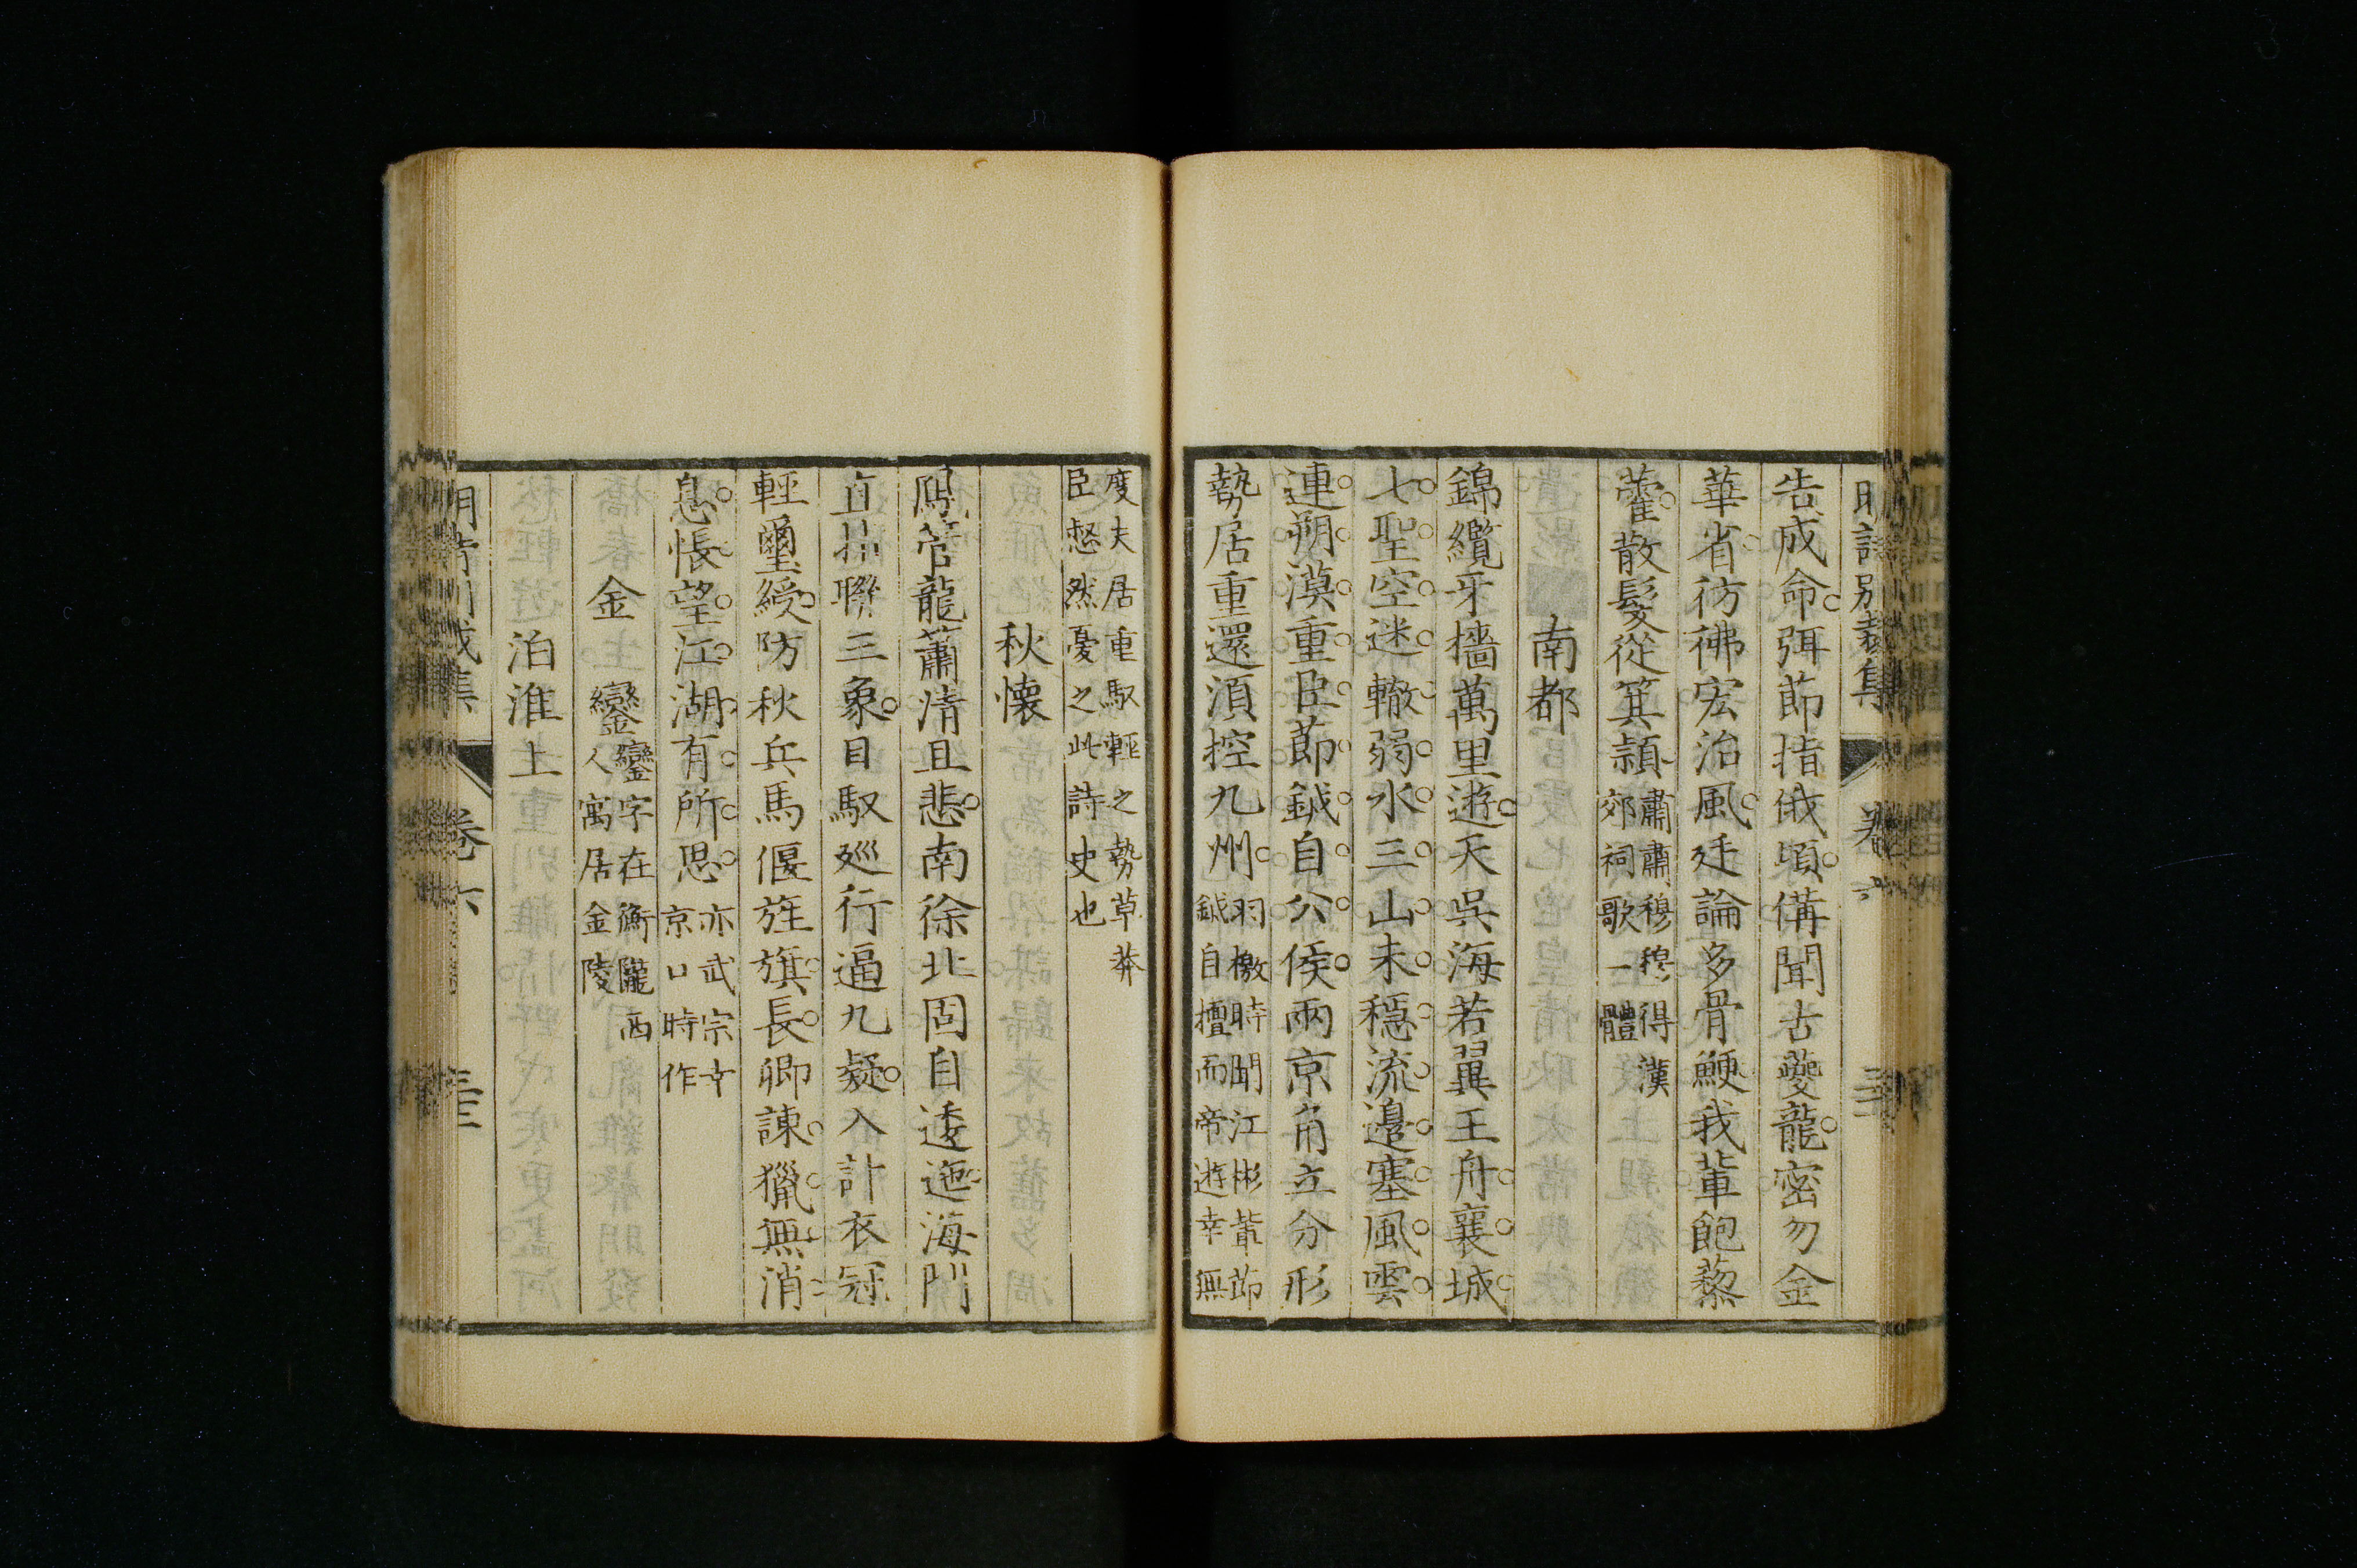 明詩別裁集 卷六 三
告成命弭莭指俄頃備聞古夔龍密勿金
華省彷彿宏治風廷論多骨鯁我輩飽藜
藿散髮從箕潁肅肅穆穆得漢
郊祠歌一體
南都
錦纜牙檣萬里遊天吳海若翼王舟襄城
七聖空迷轍弱水三山未穩流邊塞風雲
連朔漠重臣莭鉞自公侯兩京角立分形
勢居重還湏控九州羽檄時聞江彬蓄莭
鉞自擅而帝遊幸無
度夫居重馭輕之勢草莽
臣愁然憂之此詩史也
秋懷
鳳管龍簫清且悲南徐北固自逶迤海門
直北聯三象日馭廵行逼九疑入計衣冠
輕璽綬防秋兵馬偃旌旗長卿諫獵無消
息悵望江湖有所思亦武宗幸
京口時作
金鑾鑾字在衡隴西
人寓居金陵
泊淮上
卷六